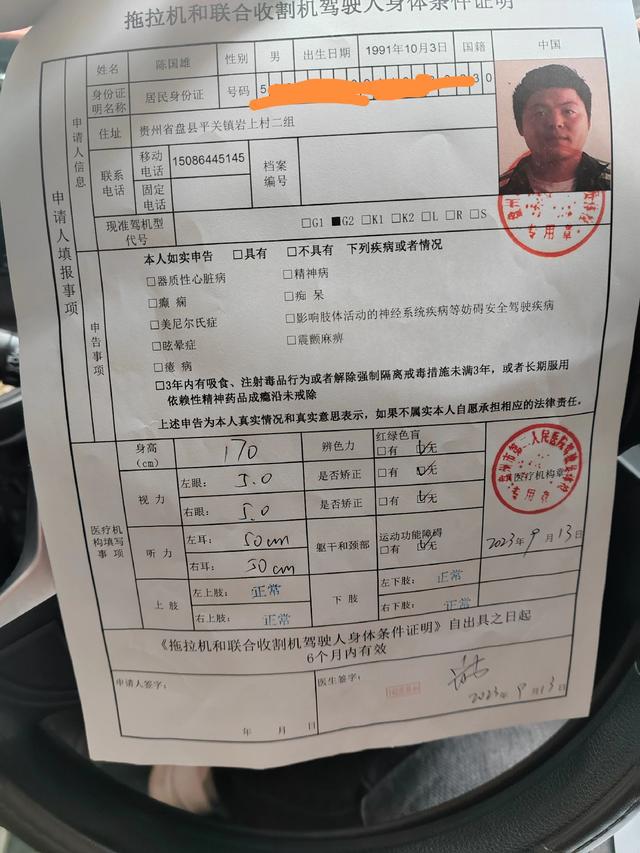 拖拉机和联合收割机驾驶人身体条件证明
申请人填报事项
申请人信息
姓名 陈国雄 性别 男 出生日期 1991年10月3日 国籍 中国
身份证明名称 居民身份证 号码 5
住址 贵州省盘县平关镇岩上村二组
联系电话 移动电话 15086445145 档案编号
固定电话
现准驾机型代号 □G1 ■G2 □K1 □K2 □L □R □S
专用章
申告事项
本人如实申告 □具有 □不具有 下列疾病或者情况
□器质性心脏病 □精神病
□癫 痫 □痴 呆
□美尼尔氏症 □影响肢体活动的神经系统疾病等妨碍安全驾驶疾病
□眩晕症 □震颤麻痹
□癔 病
□3年内有吸食、注射毒品行为或者解除强制隔离戒毒措施未满3年，或者长期服用
依赖性精神药品成瘾沿未戒除
上述申告为本人真实情况和真实意思表示，如果不属实本人自愿承担相应的法律责任。
医疗机构填写事项
身高(cm) 170 辨色力 红绿色盲 □有 ☑无
视力 左眼： 5.0 是否矫正 □有 ☑无
右眼： 5.0 是否矫正 □有 ☑无
医疗机构章
专用章
听力 左耳： 50cm 躯干和颈部 运动功能障碍 □有 ☑无
右耳： 50cm
2023年9月13日
上肢 左上肢： 正常 下肢 左下肢： 正常
右上肢： 正常 右下肢： 正常
《拖拉机和联合收割机驾驶人身体条件证明》自出具之日起
6个月内有效
申请人签字： 医生签字：
年 月 日 2023年9月13日